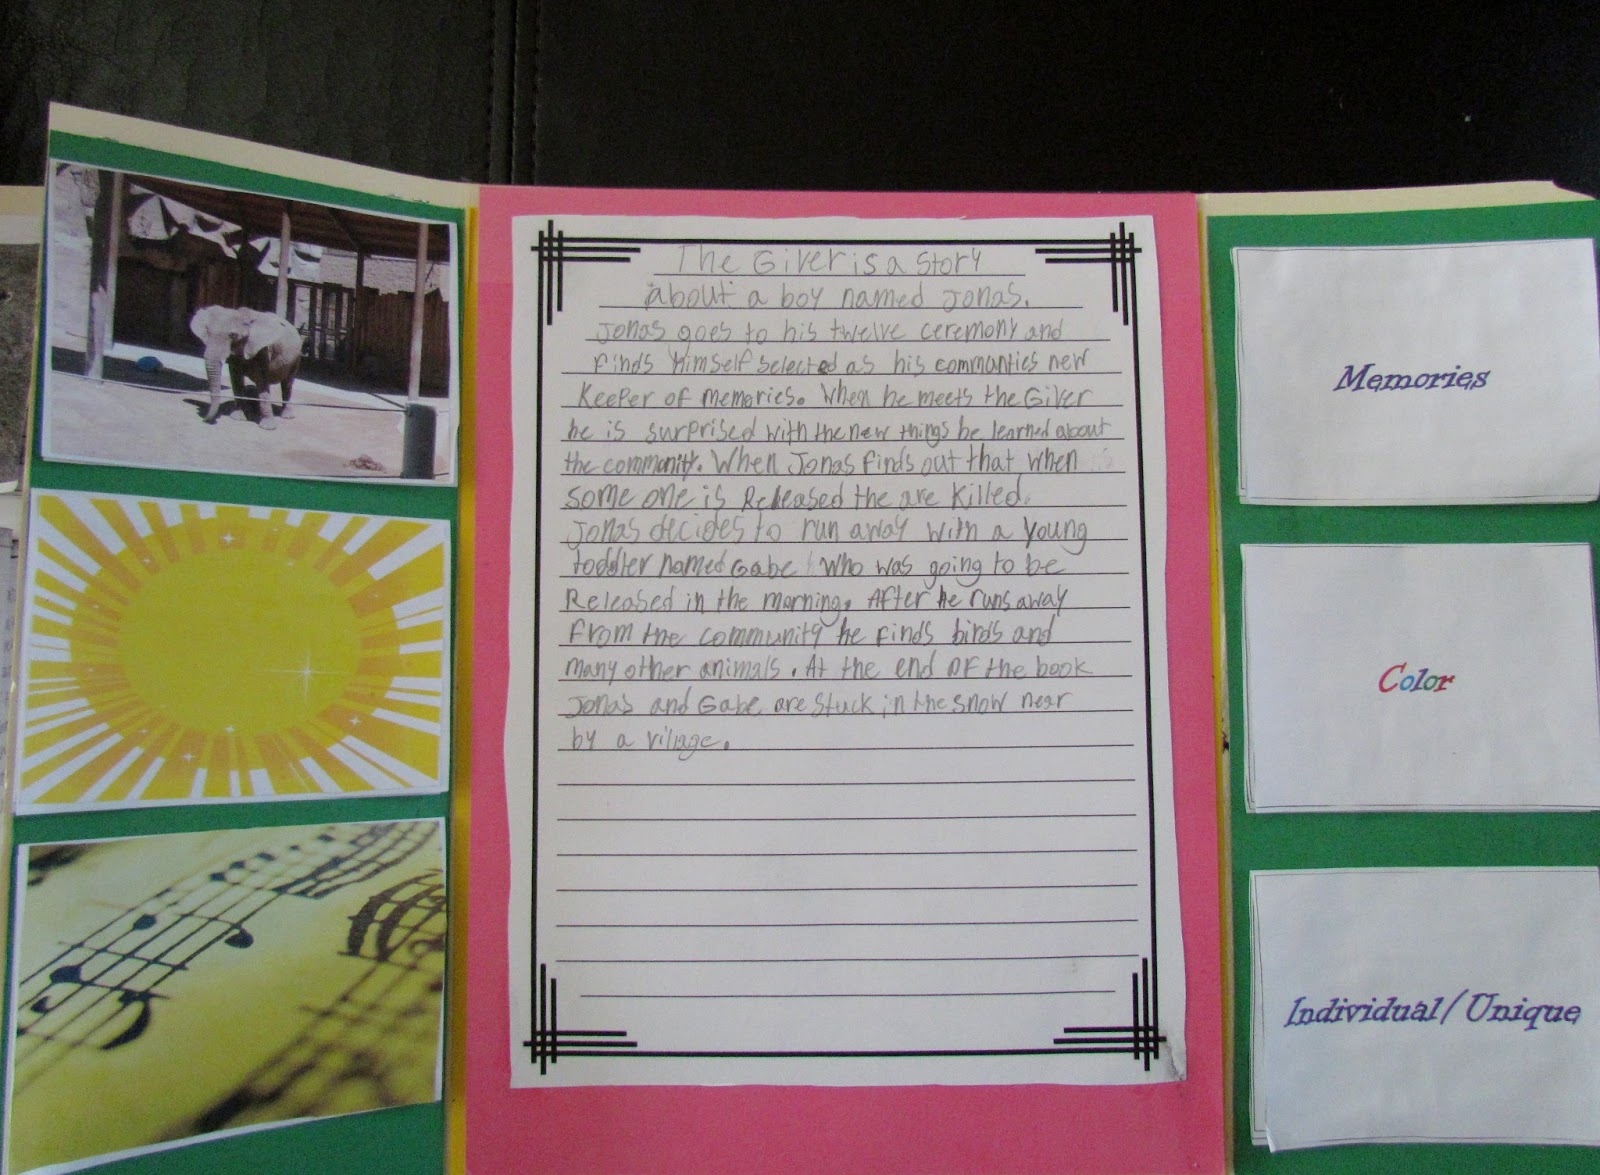 The Giver is a Story
about a boy named Jonas.
Jonas goes to his twelve ceremony and
finds himself selected as his communties new
Keeper of memories. When he meets the Giver
he is surprised with the new things he learned about
the community. When Jonas finds out that when
some one is Released the are killed.
Jonas decides to run away with a young
toddler named Gabe who was going to be
Released in the morning. After he runs away
from the community he finds birds and
many other animals. At the end of the book
Jonas and Gabe are stuck in the snow near
by a village.
Memories
Color
Individual/Unique